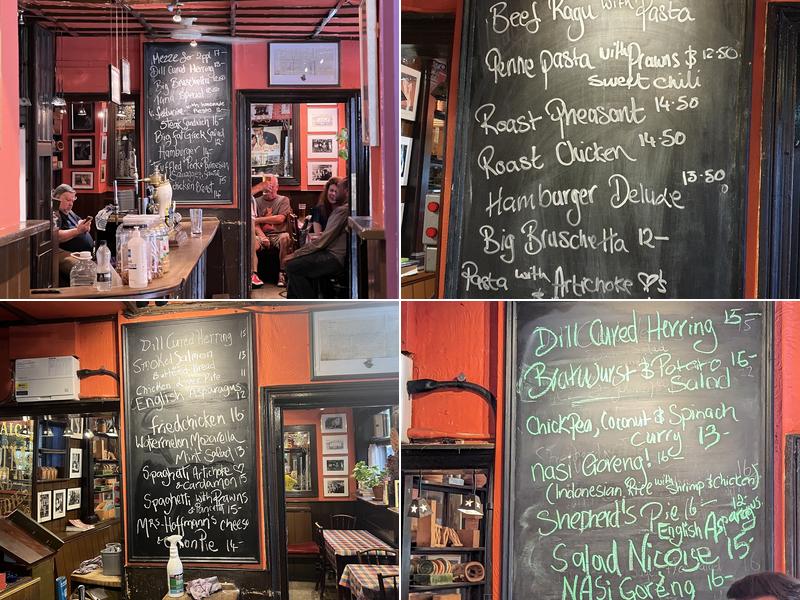 Mezze for 2ppl 17-
Dill Cured Herring 15-
Big Bruschetta
Nana Special
with homemade
Pesto
Steak Sandwich 16-
Big fat Greek Salad
Hamburger
Truffled Pork & Parmesan
Sausages
Chicken Breast
14
Beef Ragu with Pasta
Penne pasta with Prawns & 12.50
sweet chili
Roast Pheasant 14.50
Roast Chicken 14.50
Hamburger Deluxe 13.50
Big Bruschetta 12-
Pasta with Artichoke ♡'s
Dill Cured Herring 15
Smoked Salmon 13
Buttered bread
Chicken Liver Pate 11
English Asparagus 12
fried chicken 16
Watermelon Mozarella
Mint Salad 13
Spaghetti Artichoke ♡
& Cardamon 15-
Spaghetti with Prawns
& Pancetta 15-
Mrs. Hoffmann's cheese
& Onion Pie 14-
Dill Cured Herring 15-
Bratwurst & Potato 16-
Salad
Chickpea, Coconut & Spinach
Curry 13-
Nasi Goreng! 16
(Indonesian Rice with Shrimp & Chicken)
Shepherd's Pie 16-
English Asparagus 12-
Salad Niçoise 15-
NASi Goreng 16-